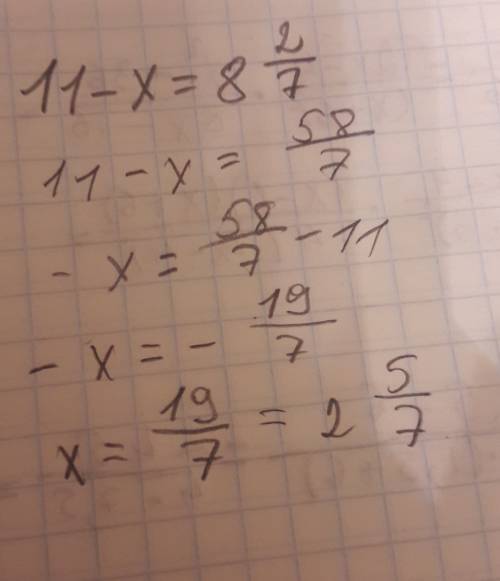 11 - x = 8 2/7
11 - x = 58/7
- x = 58/7 - 11
- x = - 19/7
x = 19/7 = 2 5/7